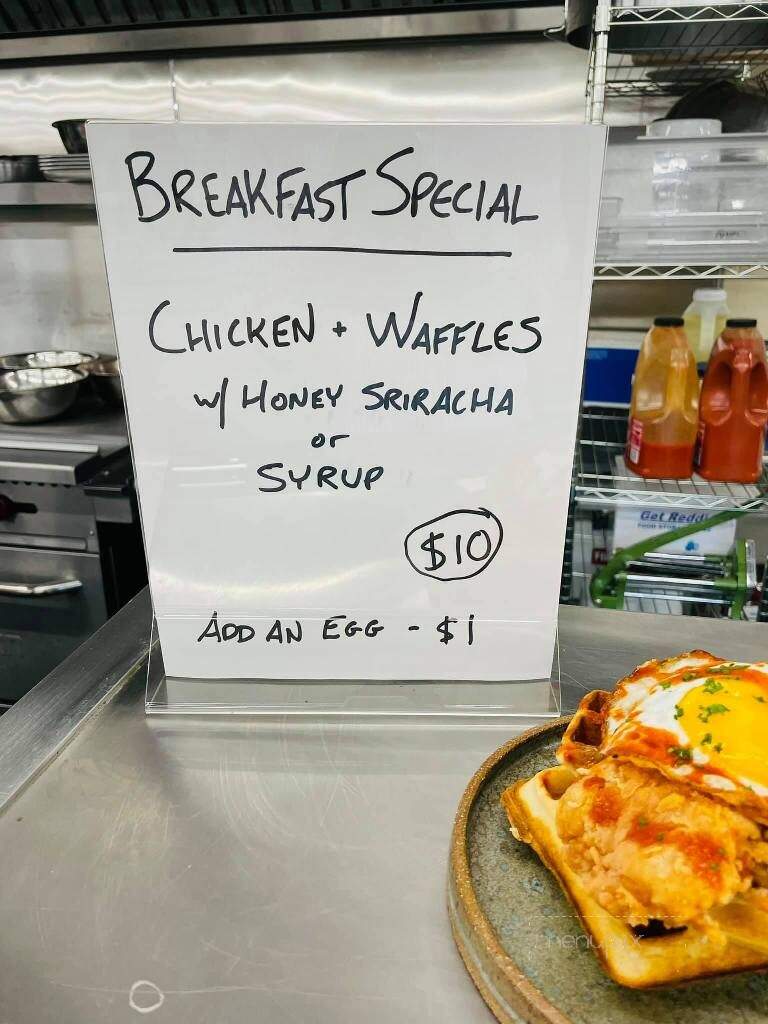 BREAKFAST SPECIAL
CHICKEN + WAFFLES
w/ HONEY SRIRACHA
or
SYRUP
$10
ADD AN EGG - $1
Get Reddi